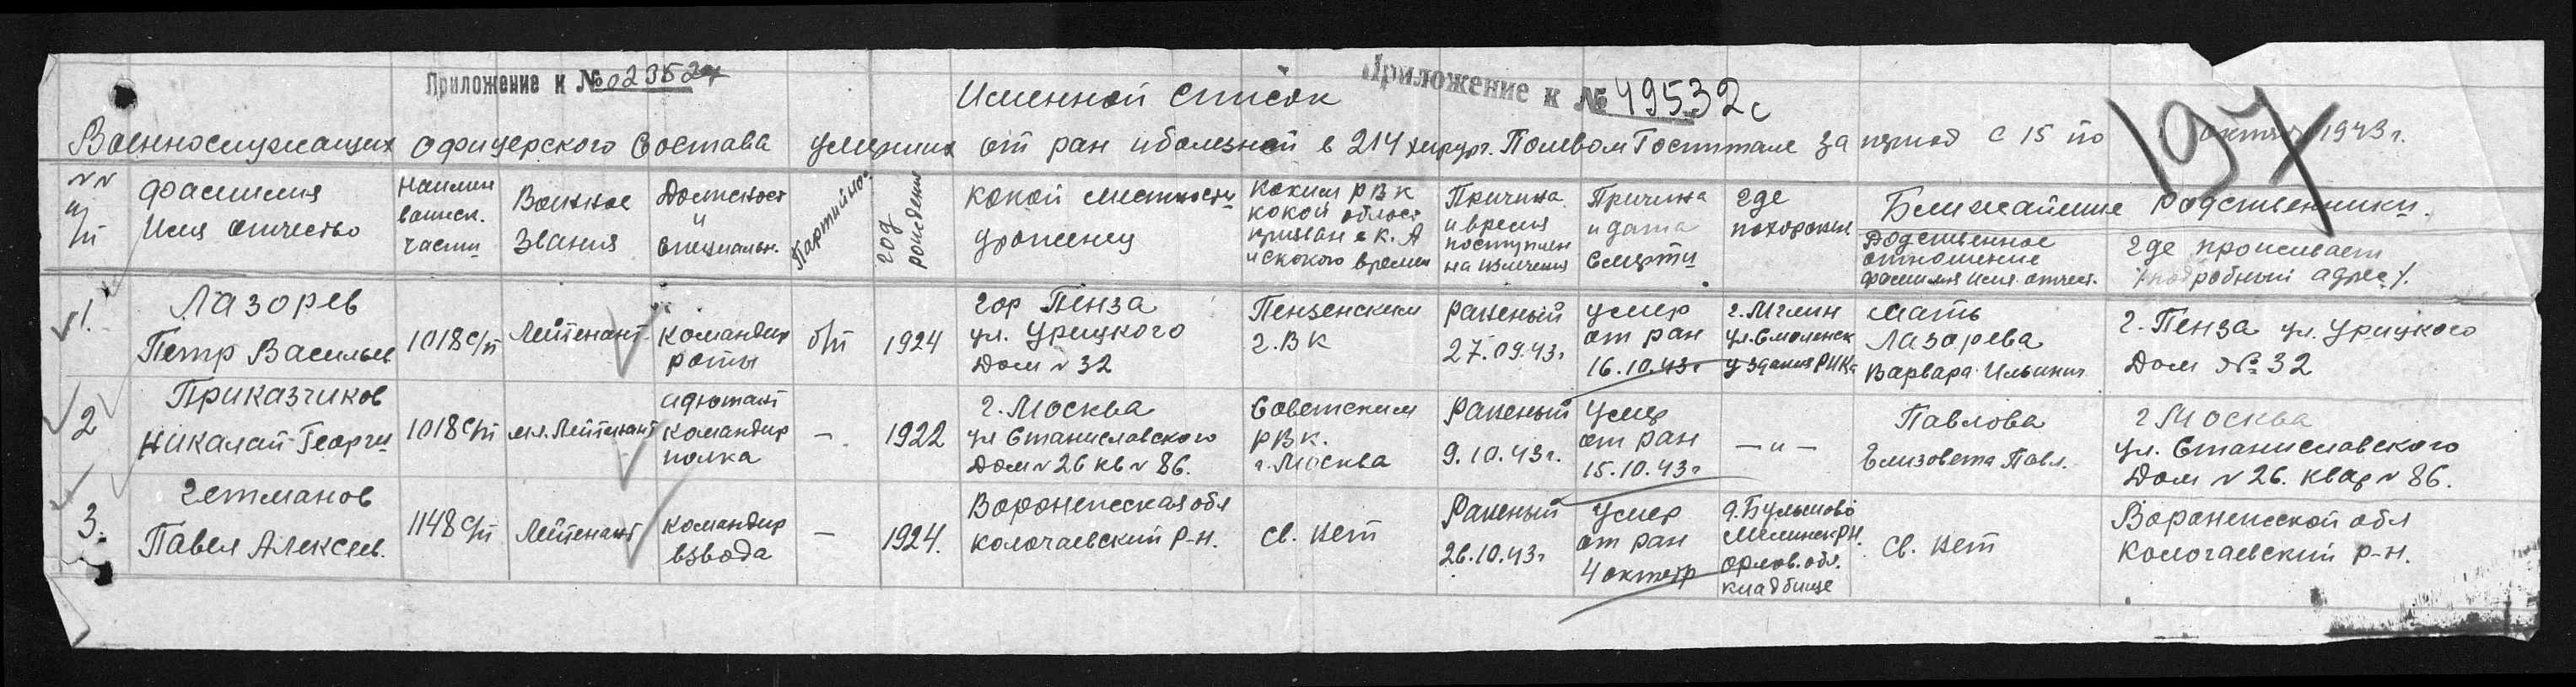 Приложение к № 02352
Приложение к № 49532с
197
Именной список
Военнослужащих офицерского состава умерших от ран и болезней в 214 хирург. Полевом Госпитале за период с 15 по октяб 1943 г.
NN п/п
Фамилия Имя отчество
Наимен воинск. части
Военное Звания
Должност и специальн.
Партийнос
год рождения
какой местности уроженец
Каким РВК какой област призван в К.А и скокого времен
Причина и время поступлен на излечения
Причина и дата Смерти
где похоронен
Ближайшие Родственники.
Родственное отношение фамилия имя отчест.
где проживает /подробный адрес/.
1.
Лазорев
Петр Васильев
1018 с/п
Лейтенант
командир
роты
б/п
1924
гор Пенза
ул. Урицкого
Дом N 32
Пензенским
г.В К
Раненый
27.09.43г
умер
от ран
16.10.43г
г. Мглин
ул. Смоленск
у здания РИКа
Мать
Лазорева
Варвара Ильинич
г. Пенза ул. Урицкого
Дом № 32
2
Приказчиков
Николай Георги
1018 с/п
мл. Лейтенант
адютант
командир
полка
—
1922
г. Москва
ул Станиславского
Дом N 26 кв N 86.
Советским
РВК.
г. Москва
Раненый
9.10.43г.
Умер
от ран
15.10.43г
— " —
Павлова
Елизовета Павл.
г Москва
ул. Станиславского
Дом N 26. квар N 86.
3.
Гетманов
Павел Алексеев.
1148 с/п
Лейтенант
командир
взвода
—
1924.
Воронежская обл
колочаевский р-н.
св. нет
Раненый
26.10.43г
Умер
от ран
4 октябр
Мглинск РН.
орлов. обл.
кладбище
св. нет
Воронежской обл
Колочаевский р-н.